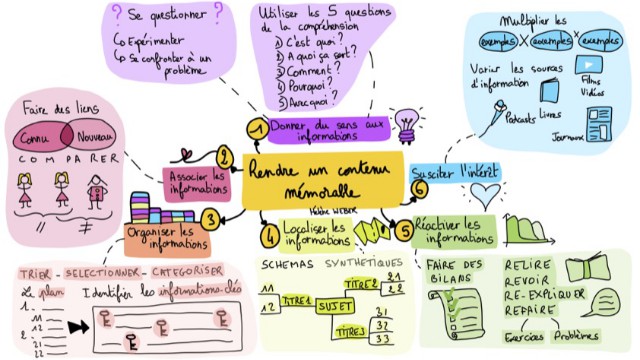 ? Se questionner ?
↳ Expérimenter
↳ Se confronter à un
problème
Utiliser les 5 questions
de la compréhension
1) C'est quoi ?
2) A quoi ça sert ?
3) Comment ?
4) Pourquoi ?
5) Avec quoi ?
Multiplier les
exemples X exemples X exemples
Varier les sources
d'information
Films
Vidéos
Podcasts
Livres
Journaux
1
Donner du sens aux
informations
Faire des liens
Connu
Nouveau
COMPARER
//
≠
2
Associer les
informations
Rendre un contenu
mémorable
Hélène WEBER
6
Susciter l'intérêt
3
Organiser les
informations
4
Localiser les
informations
5
Réactiver les
informations
TRIER - SELECTIONNER - CATEGORISER
Le plan
1.
11
12
2.
21
22
Identifier les informations-clés
SCHEMAS SYNTHETIQUES
11
12
TITRE1
SUJET
TITRE2
21
22
TITRE3
31
32
33
FAIRE DES
BILANS
RELIRE
REVOIR
RE-EXPLIQUER
REFAIRE
Exercices
Problèmes